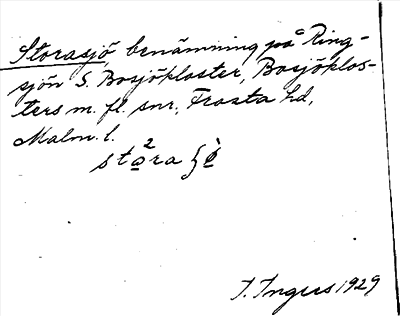 Storasjö, benämning på Ring-
sjön S. Bosjökloster, Bosjöklos-
ters m. fl. snr, Frosta hd,
Malm. l.
I. Ingers 1929